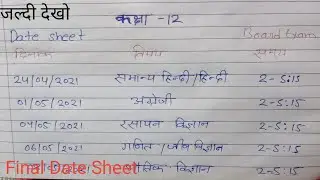 जल्दी देखो
कक्षा -12
Date sheet Board Exam
दिनांक विषय समय
24/04/2021 समान्य हिन्दी/हिन्दी 2-5:15
01/05/2021 अंग्रेजी 2-5:15
04/05/2021 रसायन विज्ञान 2-5:15
06/05/2021 गणित/जीव विज्ञान 2-5:15
Final Date Sheet विज्ञान 2-5:15